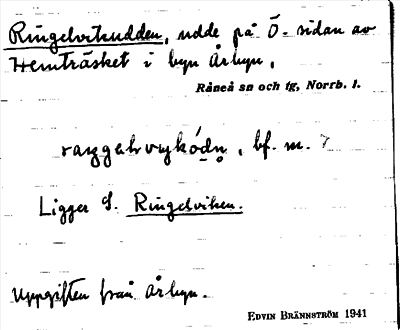 Ringelvikudden, udde på Ö. sidan av
Hemträsket i byn Årbyn.
Råneå sn och tg, Norrb. l.
bf. m.
Ligger S. Ringelviken.
Uppgiften från Årbyn.
EDVIN BRÄNNSTRÖM 1941